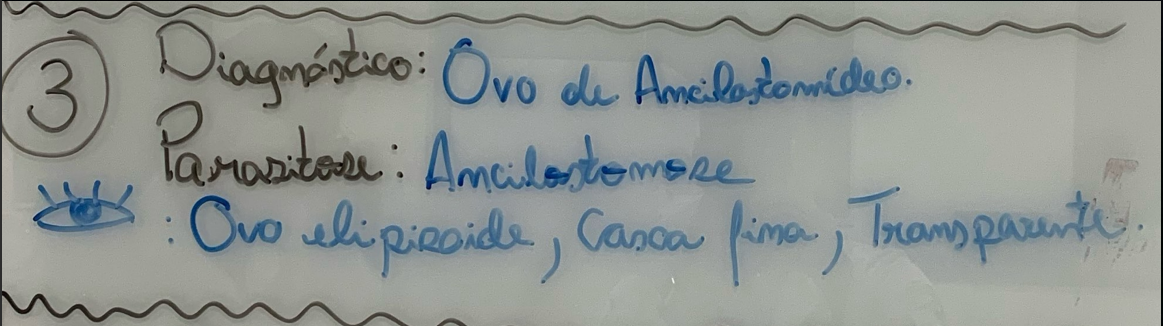 3 Diagnóstico: Ovo de Ancilostomídeo.
Parasitose: Ancilostomose
: Ovo elipsoide, Casca fina, Transparente.